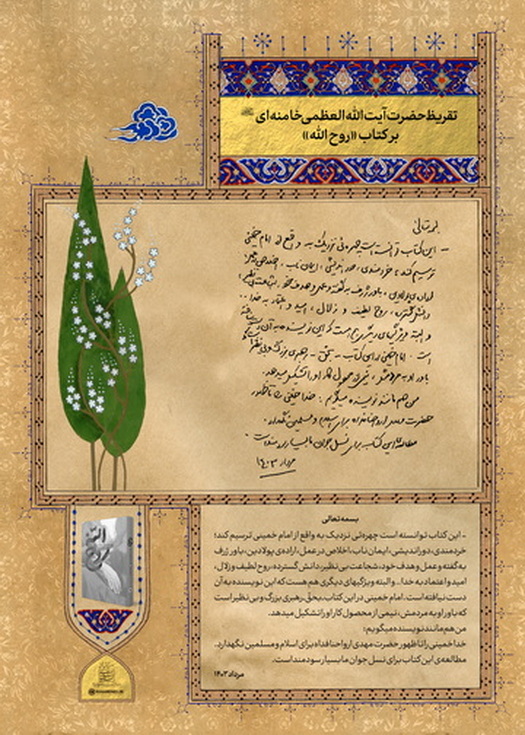 تقریظ حضرت آیت الله العظمی خامنه‌ای
بر کتاب «روح الله»
بسمه‌تعالی
- این کتاب توانسته است چهره‌ئی نزدیک به واقع از امام خمینی
ترسیم کند؛ خردمندی، دوراندیشی، ایمان ناب، اخلاص در عمل،
اراده‌ی پولادین، باور ژرف به گفته و عمل و هدف خود، شجاعت بی‌نظیر،
دانش گسترده، روح لطیف و زلال، امید و اعتماد به خدا...
و البته ویژگیهای دیگری هم هست که این نویسنده به آن دست نیافته
است. امام خمینی در این کتاب، بحق، رهبری بزرگ و بی‌نظیر است که
باور او به مردمش، نیمی از محصول کار او را تشکیل میدهد.
من هم مانند نویسنده میگویم: خدا خمینی را تا ظهور
حضرت مهدی ارواحنا فداه برای اسلام و مسلمین نگهدارد.
مطالعه‌ی این کتاب برای نسل جوان ما بسیار سودمند است.
مرداد ۱۴۰۳
بسمه‌تعالی
- این کتاب توانسته است چهره‌ئی نزدیک به واقع از امام خمینی ترسیم کند؛
خردمندی، دوراندیشی، ایمان ناب، اخلاص در عمل، اراده‌ی پولادین، باور ژرف
به گفته و عمل و هدف خود، شجاعت بی‌نظیر، دانش گسترده، روح لطیف و زلال،
امید و اعتماد به خدا... و البته ویژگیهای دیگری هم هست که این نویسنده به آن
دست نیافته است. امام خمینی در این کتاب، بحق، رهبری بزرگ و بی‌نظیر است
که باور او به مردمش، نیمی از محصول کار او را تشکیل میدهد.
من هم مانند نویسنده میگویم:
خدا خمینی را تا ظهور حضرت مهدی ارواحنا فداه برای اسلام و مسلمین نگهدارد.
مطالعه‌ی این کتاب برای نسل جوان ما بسیار سودمند است.
مرداد ۱۴۰۳